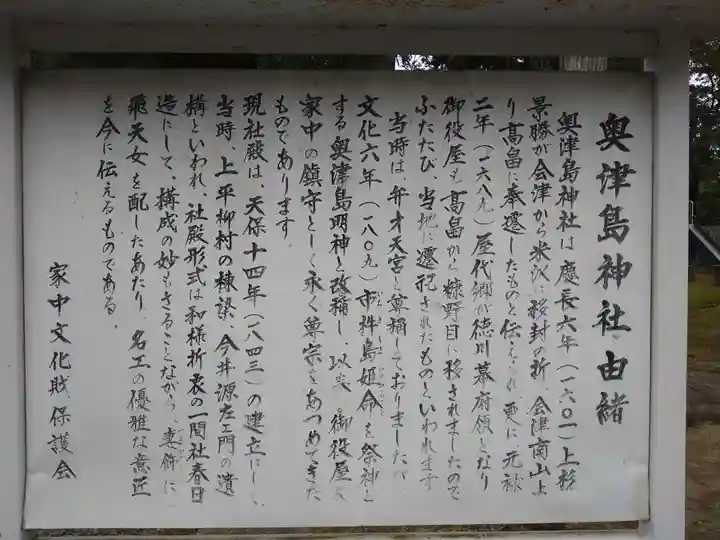 奥津島神社由緒
奥津島神社は慶長六年（一六〇一）上杉
景勝が会津から米沢に移封の折、会津南山よ
り高畠に奉遷したものと伝えられ、更に元禄
二年（一六八九）屋代郷が徳川幕府領となり
御役屋も高畠から糠野目に移されましたので
ふたたび、当地に遷祀されたものといわれます
当時は、弁才天宮と尊稱しておりましたが
文化六年（一八〇九）市杵島姫命を祭神と
する奥津島明神と改稱し、以来、御役屋及
家中の鎮守として永く尊宗をあつめてきた
ものであります。
現社殿は、天保十四年（一八四三）の建立にして
当時、上平柳村の棟梁、今井源左ェ門の遺
構といわれ、社殿形式は和様折衷の一間社春日
造にして、構成の妙もさることながら、妻飾に
飛天女を配したあたり、名工の優雅な意匠
を今に伝えるものである。
家中文化財保護会